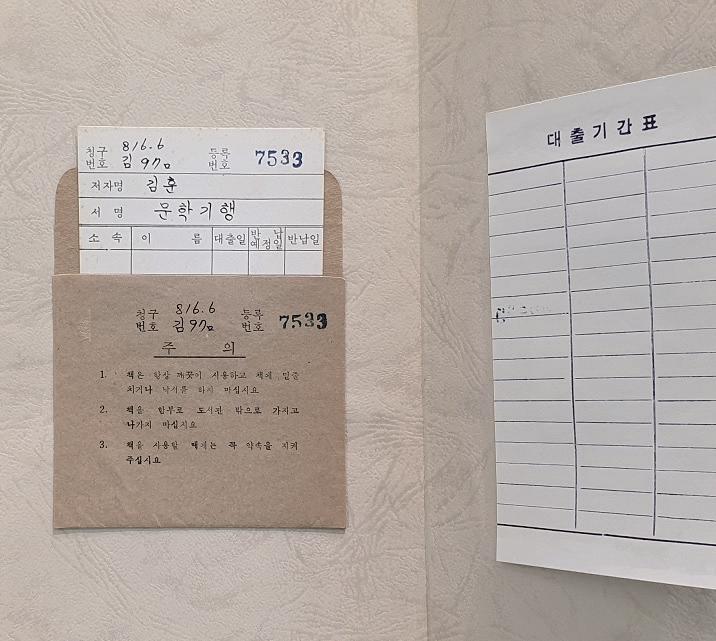 청구 816.6 등록 7533
번호 김97ㅁ 번호
저자명 김훈
서 명 문학기행
소 속 이 름 대출일 반납예정일 반납일
청구 816.6 등록 7533
번호 김97ㅁ 번호
주 의
1. 책은 항상 깨끗이 사용하고 책에 밑줄
치거나 낙서를 하지 마십시요
2. 책을 함부로 도서관 밖으로 가지고
나가지 마십시요
3. 책을 사용할 때에는 꼭 약속을 지켜
주십시요
대출기간표